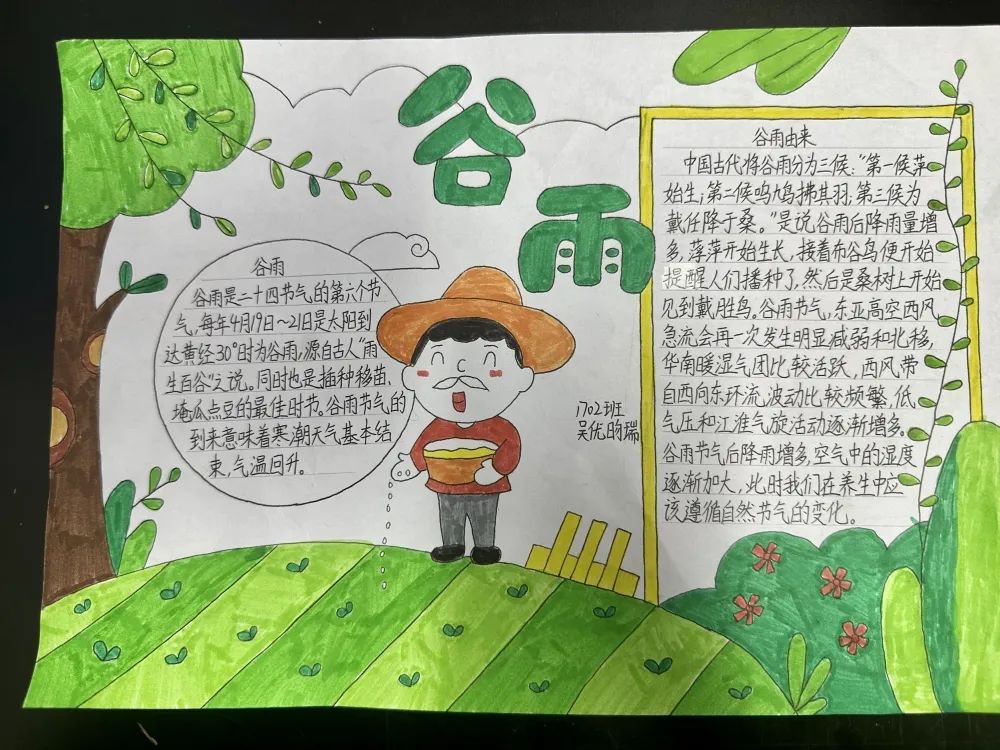 谷雨
谷雨
谷雨是二十四节气的第六个节
气,每年4月19日~21日是太阳到
达黄经30°时为谷雨,源自古人“雨
生百谷”之说。同时也是插种移苗、
埯瓜点豆的最佳时节。谷雨节气的
到来意味着寒潮天气基本结
束,气温回升。
1702班
吴优昀瑞
谷雨由来
中国古代将谷雨分为三候:“第一候萍
始生;第二候鸣鸠拂其羽;第三候为
戴任降于桑。”是说谷雨后降雨量增
多,萍开始生长,接着布谷鸟便开始
提醒人们播种了,然后是桑树上开始
见到戴胜鸟。谷雨节气,东亚高空西风
急流会再一次发生明显减弱和北移,
华南暖湿气团比较活跃,西风带
自西向东环流波动比较频繁,低
气压和江淮气旋活动逐渐增多。
谷雨节气后降雨增多,空气中的湿度
逐渐加大,此时我们在养生中应
该遵循自然节气的变化。